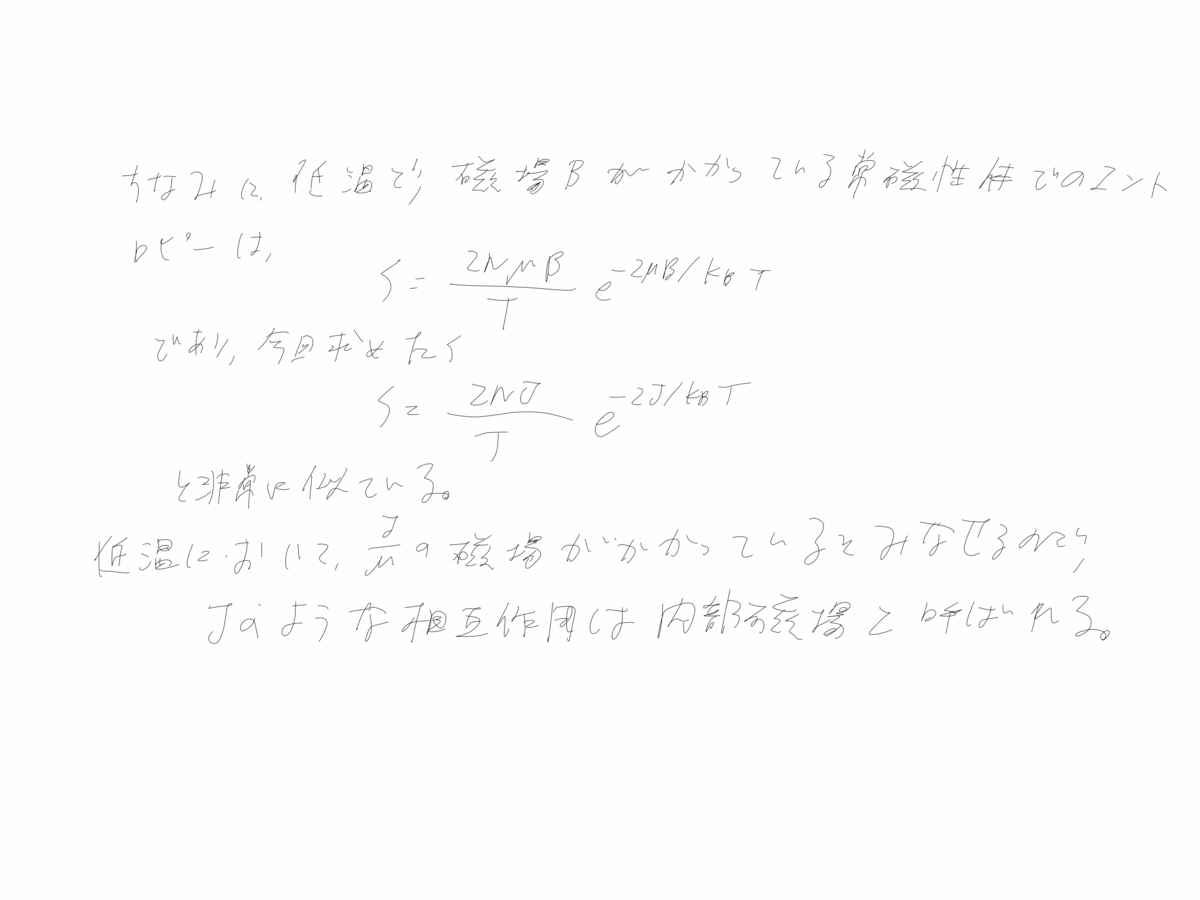 ちなみに、低温で、磁場Bがかかっている常磁性体でのエント
ロピーは、
S = \frac{2NμB}{T} e^{-2μB/k_B T}
であり、今回求めたく
S = \frac{2NJ}{T} e^{-2J/k_B T}
と非常に似ている。
低温において、\frac{J}{μ}の磁場がかかっているとみなせるので、
Jのような相互作用は内部磁場と呼ばれる。